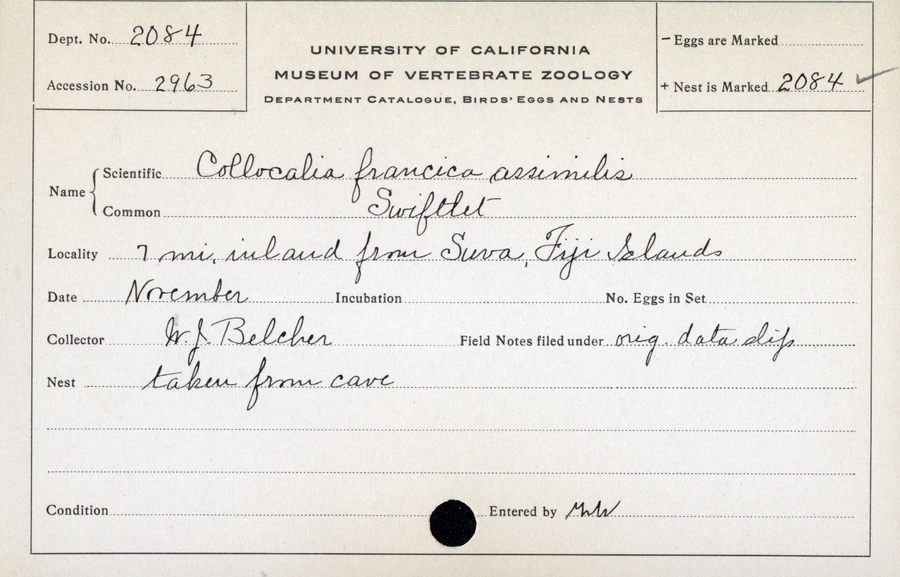 Dept. No. 2084
Accession No. 2963
UNIVERSITY OF CALIFORNIA
MUSEUM OF VERTEBRATE ZOOLOGY
DEPARTMENT CATALOGUE, BIRDS' EGGS AND NESTS
- Eggs are Marked
+ Nest is Marked 2084
Name
Scientific Collocalia francica assimilis
Common Swiftlet
Locality 7 mi. inland from Suva, Fiji Islands
Date November Incubation No. Eggs in Set
Collector W. J. Belcher Field Notes filed under orig. data slip
Nest taken from cave
Condition Entered by